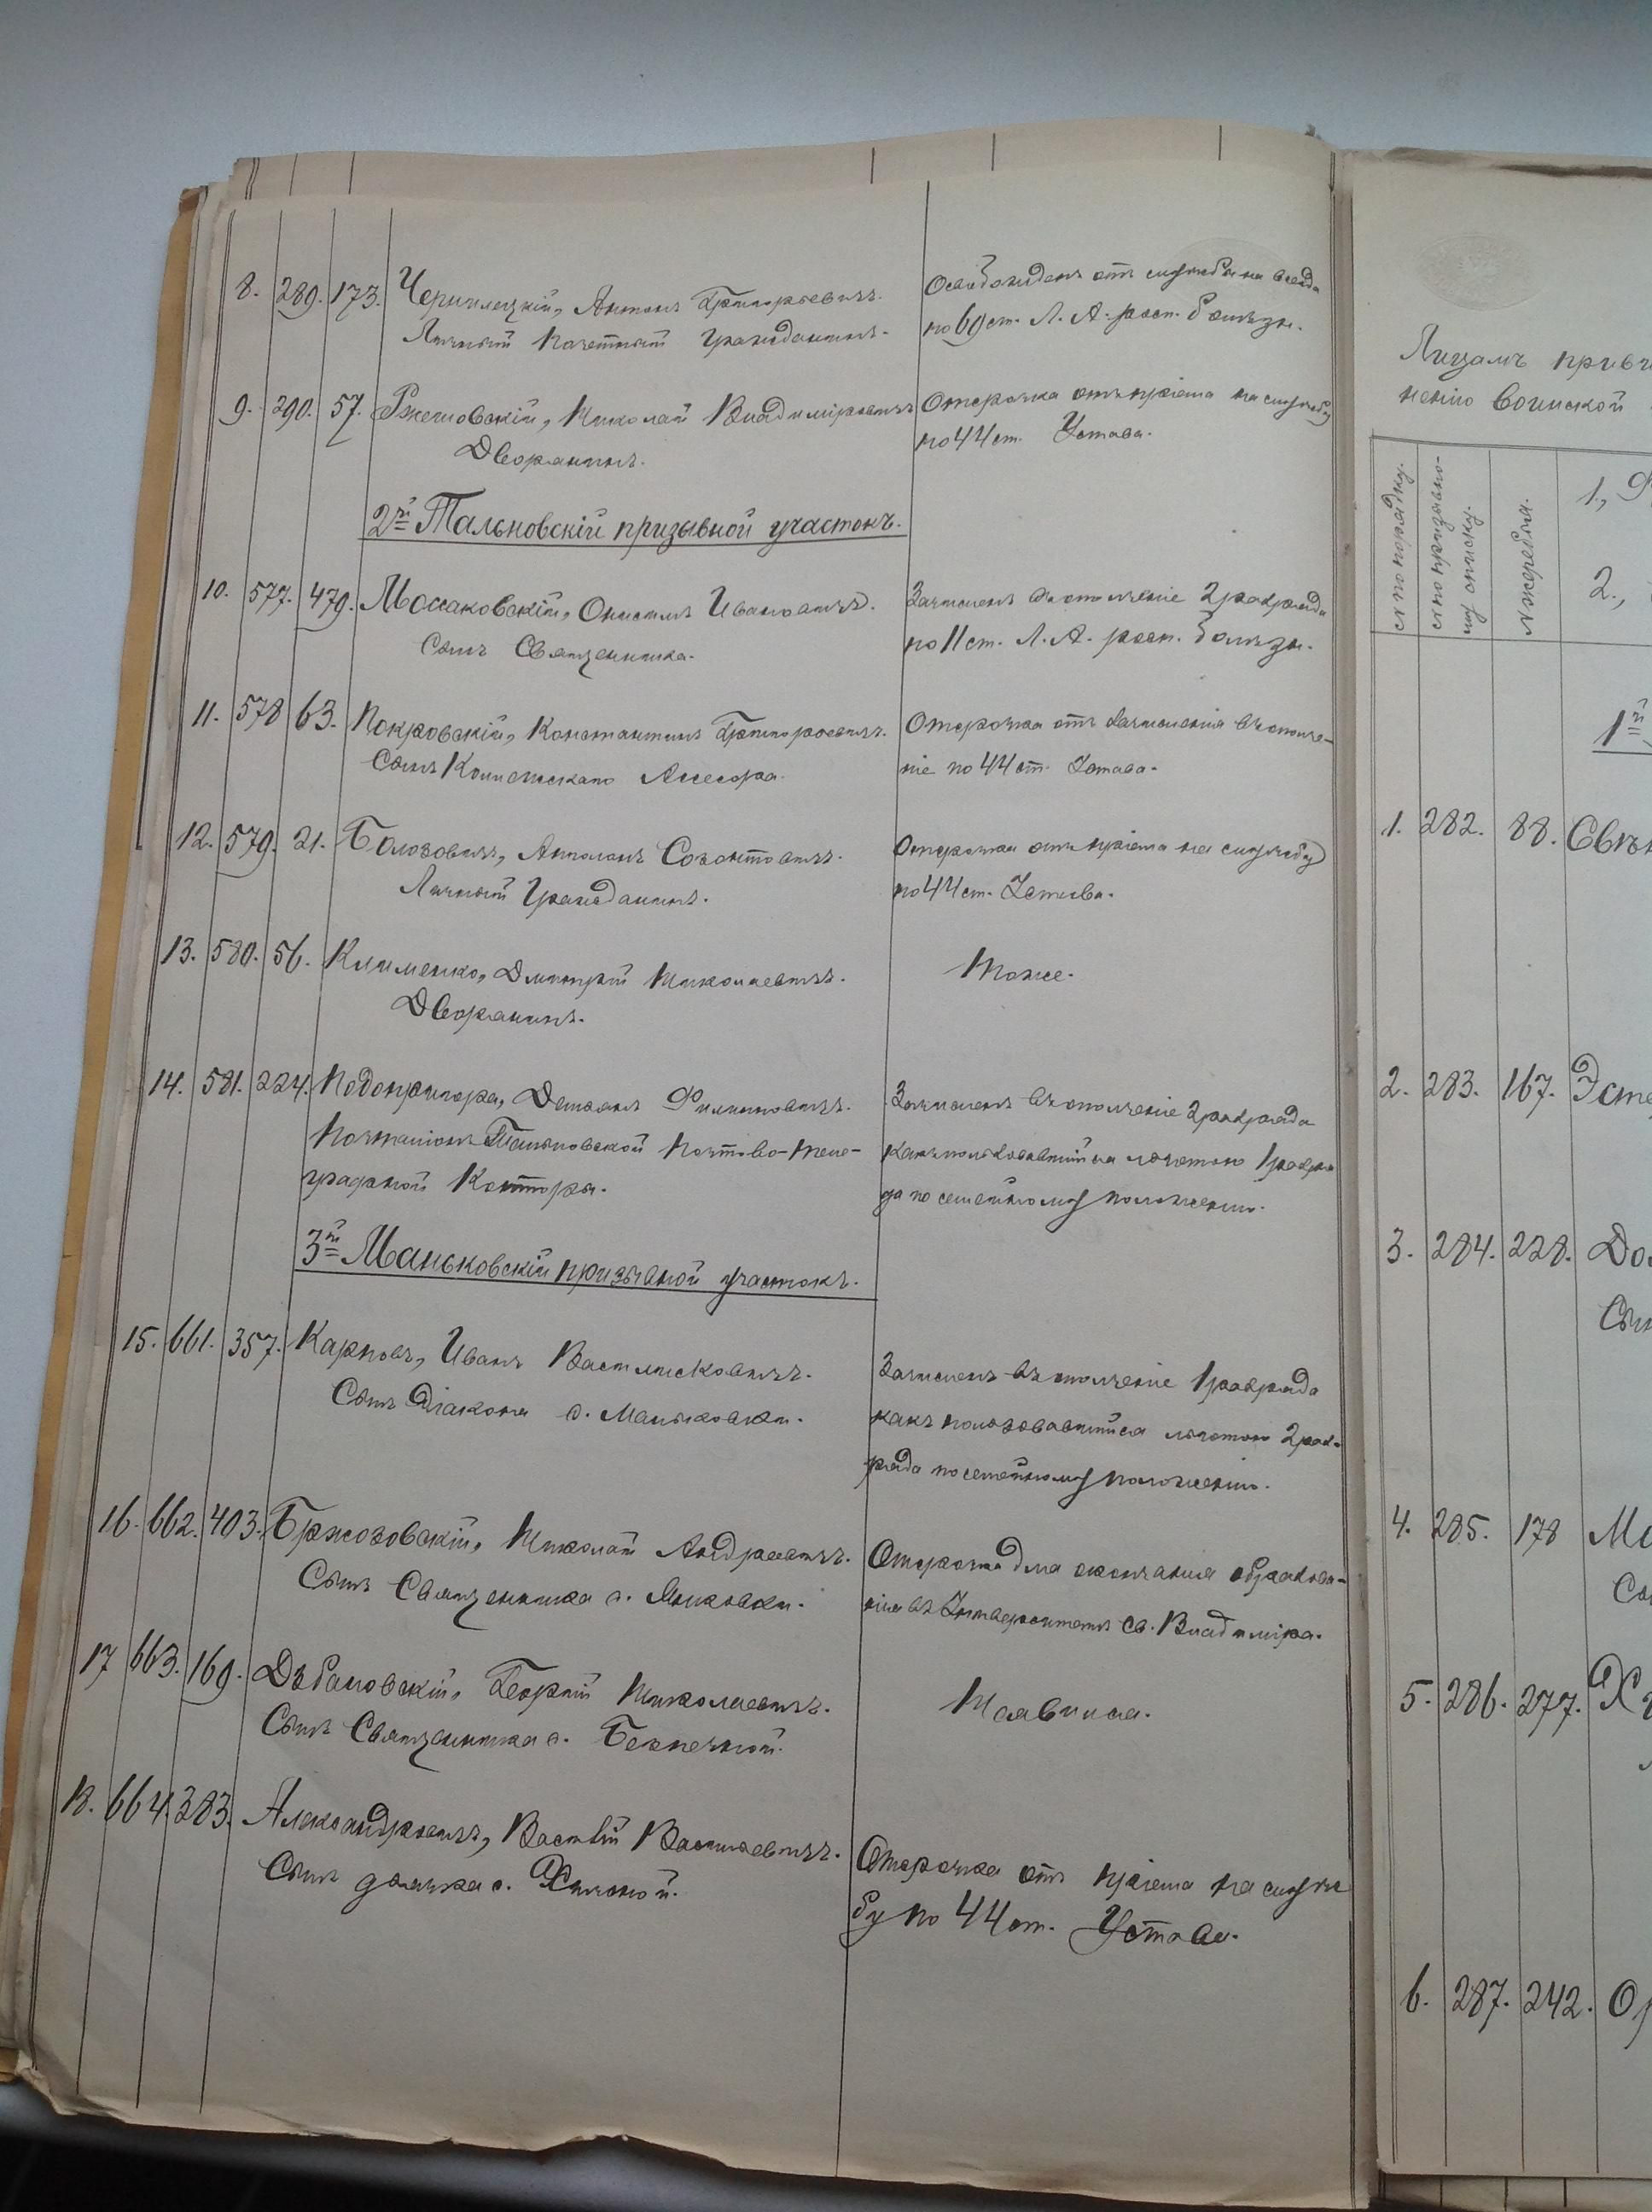 8. 289. 173. Чернилецкій, Антонъ Григорьевичъ.
Личный Почетный Гражданинъ.
Освобожденъ отъ службы на всегда
по 69 ст. Л. А. росп. болѣзн.
9. 290. 57. Ржешовскій, Николай Владиміровичъ
Дворянинъ.
Отсрочка отъ пріема на службу
по 44 ст. Устава.
2й Тальновскій призывной участокъ.
10. 577. 479. Моссаковскій, Онисимъ Ивановичъ.
Сынъ Священника.
Зачисленъ въ ополченіе 2 разряда
по 11 ст. Л. А. росп. болѣзн.
11. 578 63. Покровскій, Константинъ Григорьевичъ.
Сынъ Коллежскаго Ассесора.
Отсрочка отъ зачисленія въ ополче-
ніе по 44 ст. Устава.
12. 579. 21. Болозовичъ, Антонъ Созонтовичъ.
Личный Гражданинъ.
Отсрочка отъ пріема на службу
по 44 ст. Устава.
13. 580. 56. Клименко, Дмитрій Николаевичъ.
Дворянинъ.
Тоже.
14. 581. 224. Подопригора, Демьянъ Филиповичъ.
Почталіонъ Тальновской Почтово-теле-
графной Конторы.
Зачисленъ въ ополченіе 2 разряда
какъ пользовавшійся льготою 1 разря
да по семейному положенію.
3й Маньковскій призывной участокъ.
15. 661. 357. Карповъ, Иванъ Василисковичъ.
Сынъ Діакона с. Маньковки.
Зачисленъ въ ополченіе 1 разряда
какъ пользовавшійся льготою 2 раз-
ряда по семейному положенію.
16. 662. 403. Бржозовскій, Николай Андреевичъ.
Сынъ Священника с. Янковки.
Отсрочка для окончанія образова-
нія въ Университетѣ Св. Владиміра.
17 663. 169. Дѣбановскій, Георгій Николаевичъ.
Сынъ Священника с. Безпечной.
Неявился.
18. 664. 383. Александровичъ, Василій Васильевичъ.
Сынъ дьячка с. Хижной.
Отсрочка отъ пріема на служ
бу по 44 ст. Устава.
Лицамъ
ненію воинской
№ по порядку.
№ по призывно-
му списку.
№ жеребья.
1.,
2.,
1й
1. 282. 88.
2. 283. 167.
3. 284. 228.
4. 285. 178
5. 286. 277.
6. 287. 242.